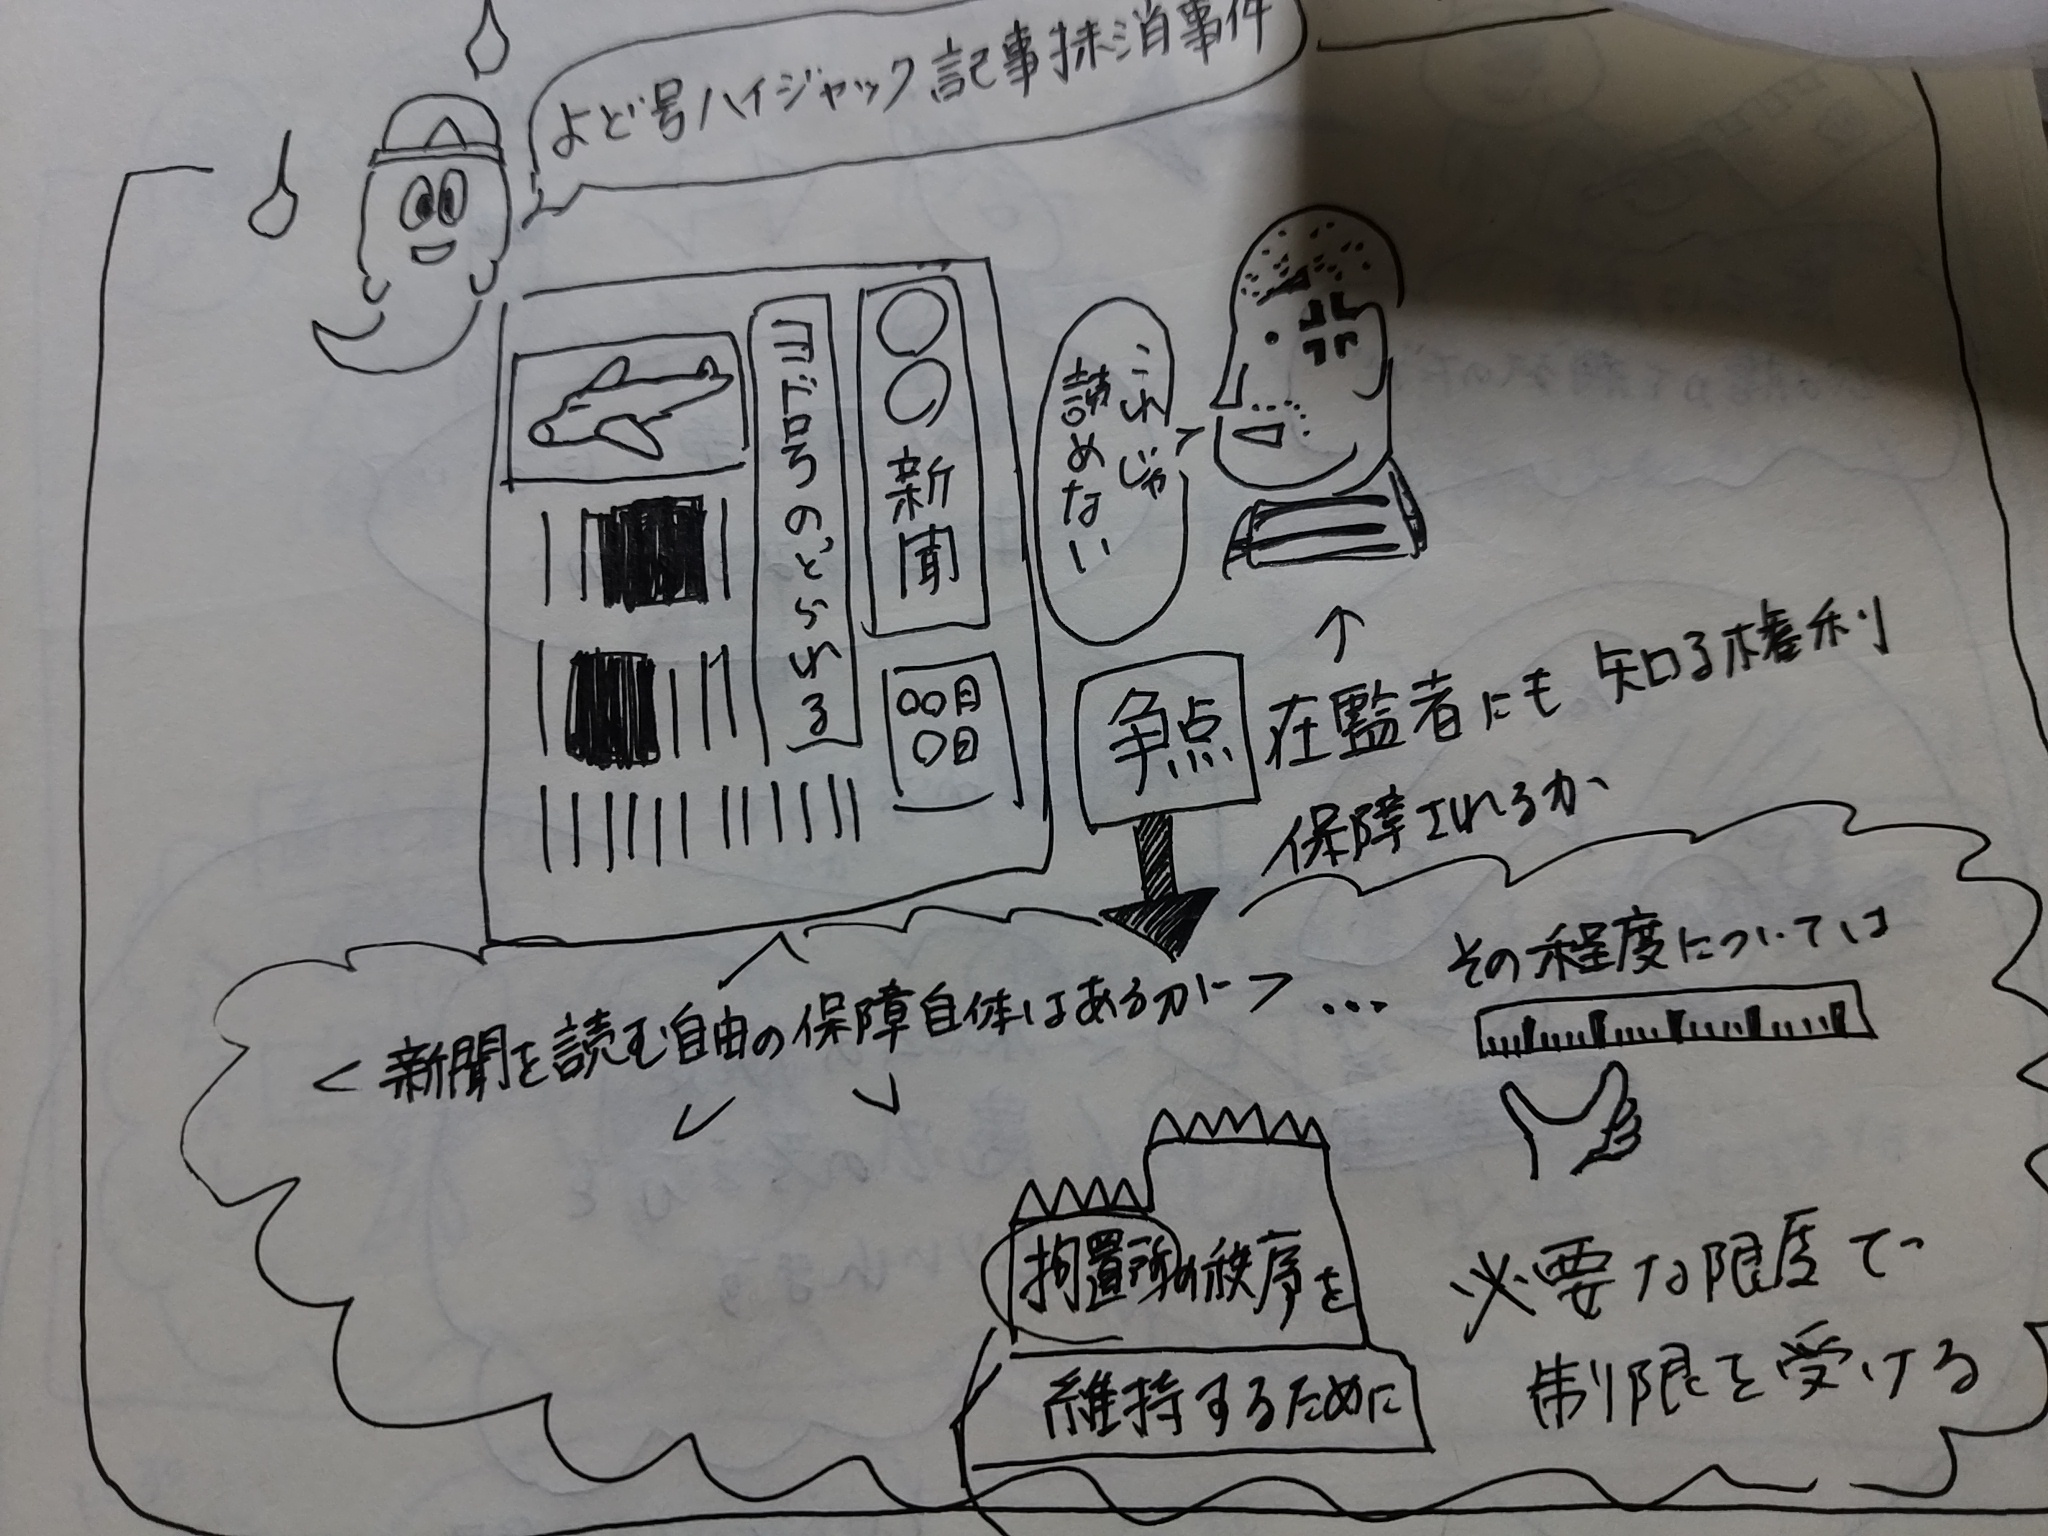 よど号ハイジャック記事抹消事件
○○新聞
○○月
○日
ヨド号のっとられる
これじゃ
読めない
争点
在監者にも 知る権利
保障されるか
新聞を読む自由の保障自体はあるが…
その程度については
拘置所の秩序を
維持するために
必要な限度で
制限を受ける